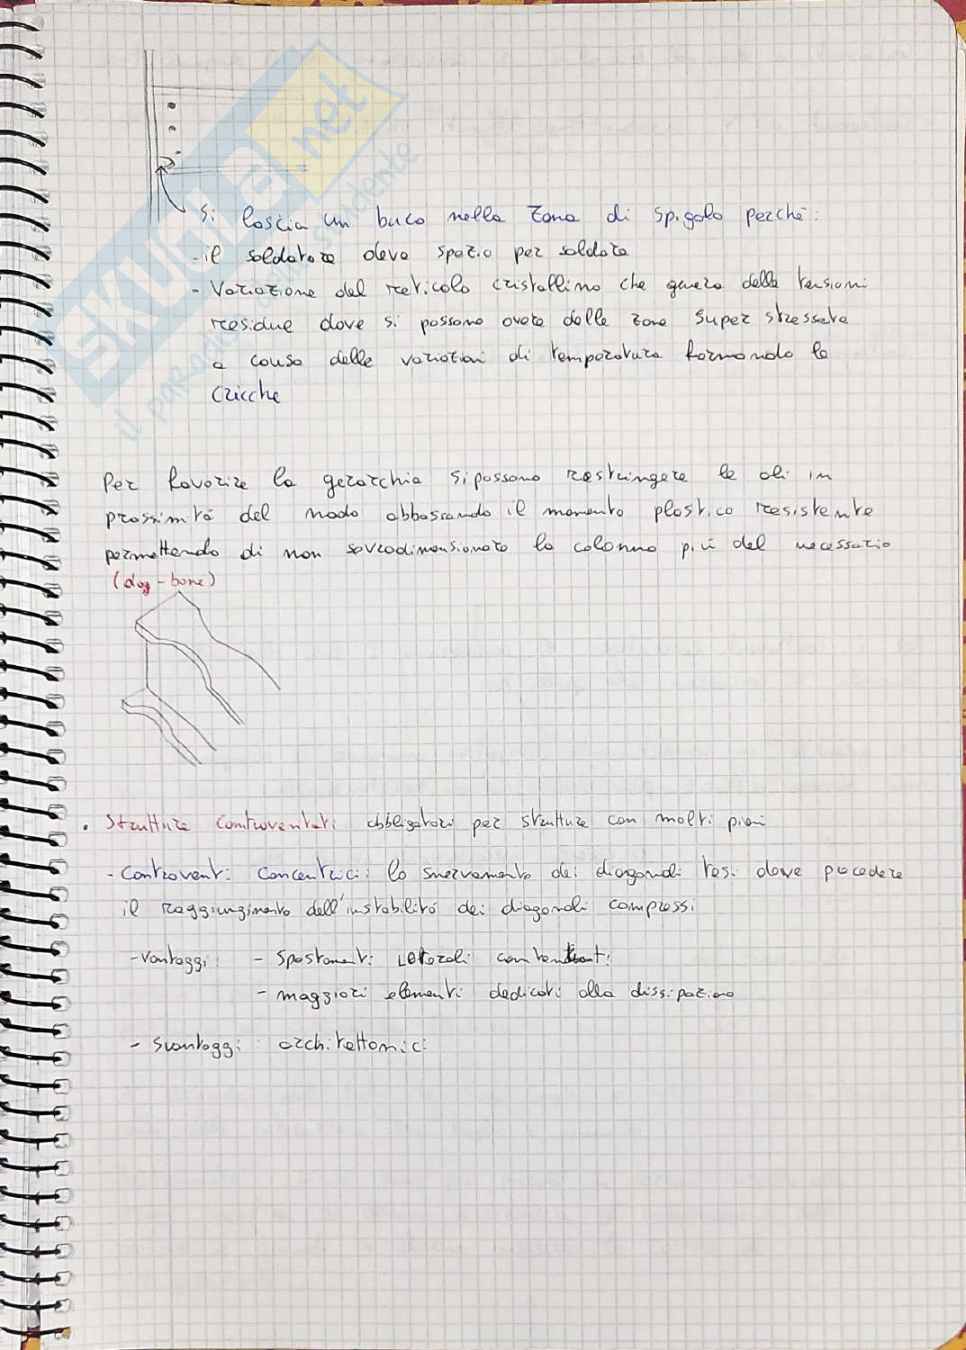 SKUOLA.net
il paradiso dello studente
Si lascia un buco nella zona di spigolo perché:
- il soldatore deve spazio per soldare
- Variazione del reticolo cristallino che genera delle tensioni
residue dove si possono avere delle zone super stressate
a causa delle variazioni di temperatura formando le
cricche
Per favorire la gerarchia si possono restringere le ali in
prossimità del nodo abbassando il momento plastico resistente
permettendo di non sovradimensionare la colonna più del necessario
(dog-bone)
• Strutture controventati obbligatori per strutture con molti piani
- Controventi Concentrici: lo snervamento dei diagonali tesi deve precedere
il raggiungimento dell'instabilità dei diagonali compressi
- Vantaggi: - Spostamenti laterali contenuti
- maggiori elementi dedicati alla dissipazione
- Svantaggi: architettonici